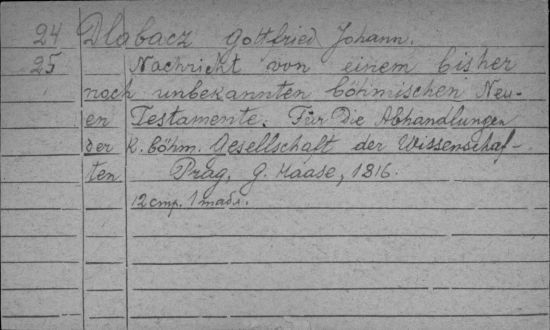 24 Dlabacz Gottfried Johann.
25 Nachricht von einem bisher
noch unbekannten böhmischen Neu-
en Testamente. Für Die Abhandlungen
der k. böhm. Gesellschaft der Wissenschaf-
ten Prag, G. Haase, 1816.
12 стр. 1 табл.